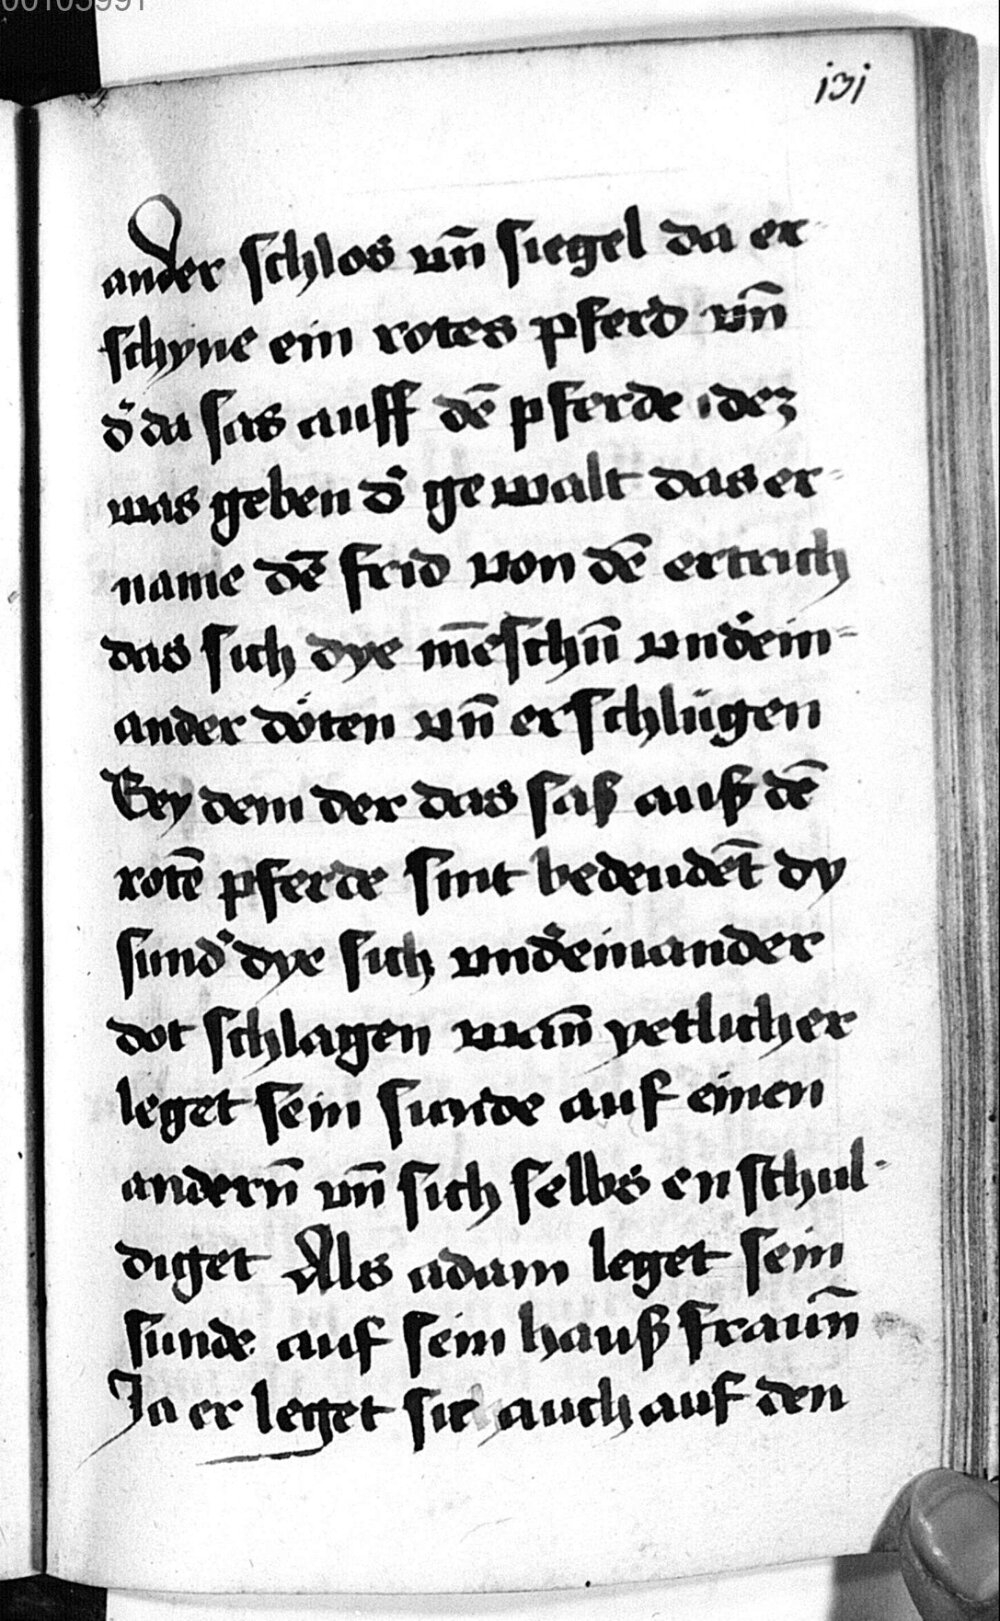 00105991
131
ander schlos vn̄ siegel da er
schyne ein rotes pferd vn̄
d̕ da sas auff dē pferde dez
was geben d̕ gewalt das er
name dē frid von dē ertrich
das sich dye mēschn̄ vnd̕ein⸗
ander döten vn̄ erschlügen
Bey dem der das saß auß dē
rotē pferde sint bedeudēt dy
sund̕ dye sich vnd̕einander
dot schlagen wan̄ yetlicher
leget sein sunde auf einen
andern̄ vn̄ sich selbs enschul-
diget Als adam leget sein
sunde auf sein hauß fraun̄
Ja er leget sie auch auf den